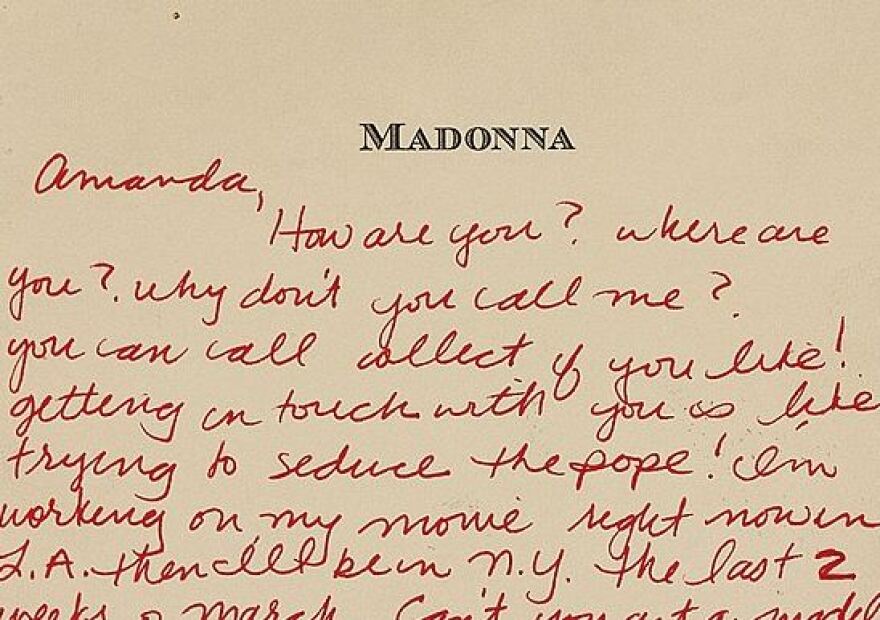 MADONNA
Amanda,
How are you? where are
you?. why don't you call me?
you can call collect if you like!
getting in touch with you is like
trying to seduce the pope! I'm
working on my movie right now in
L.A. then I'll be in N.Y. the last 2
weeks of march. Can't you get a model